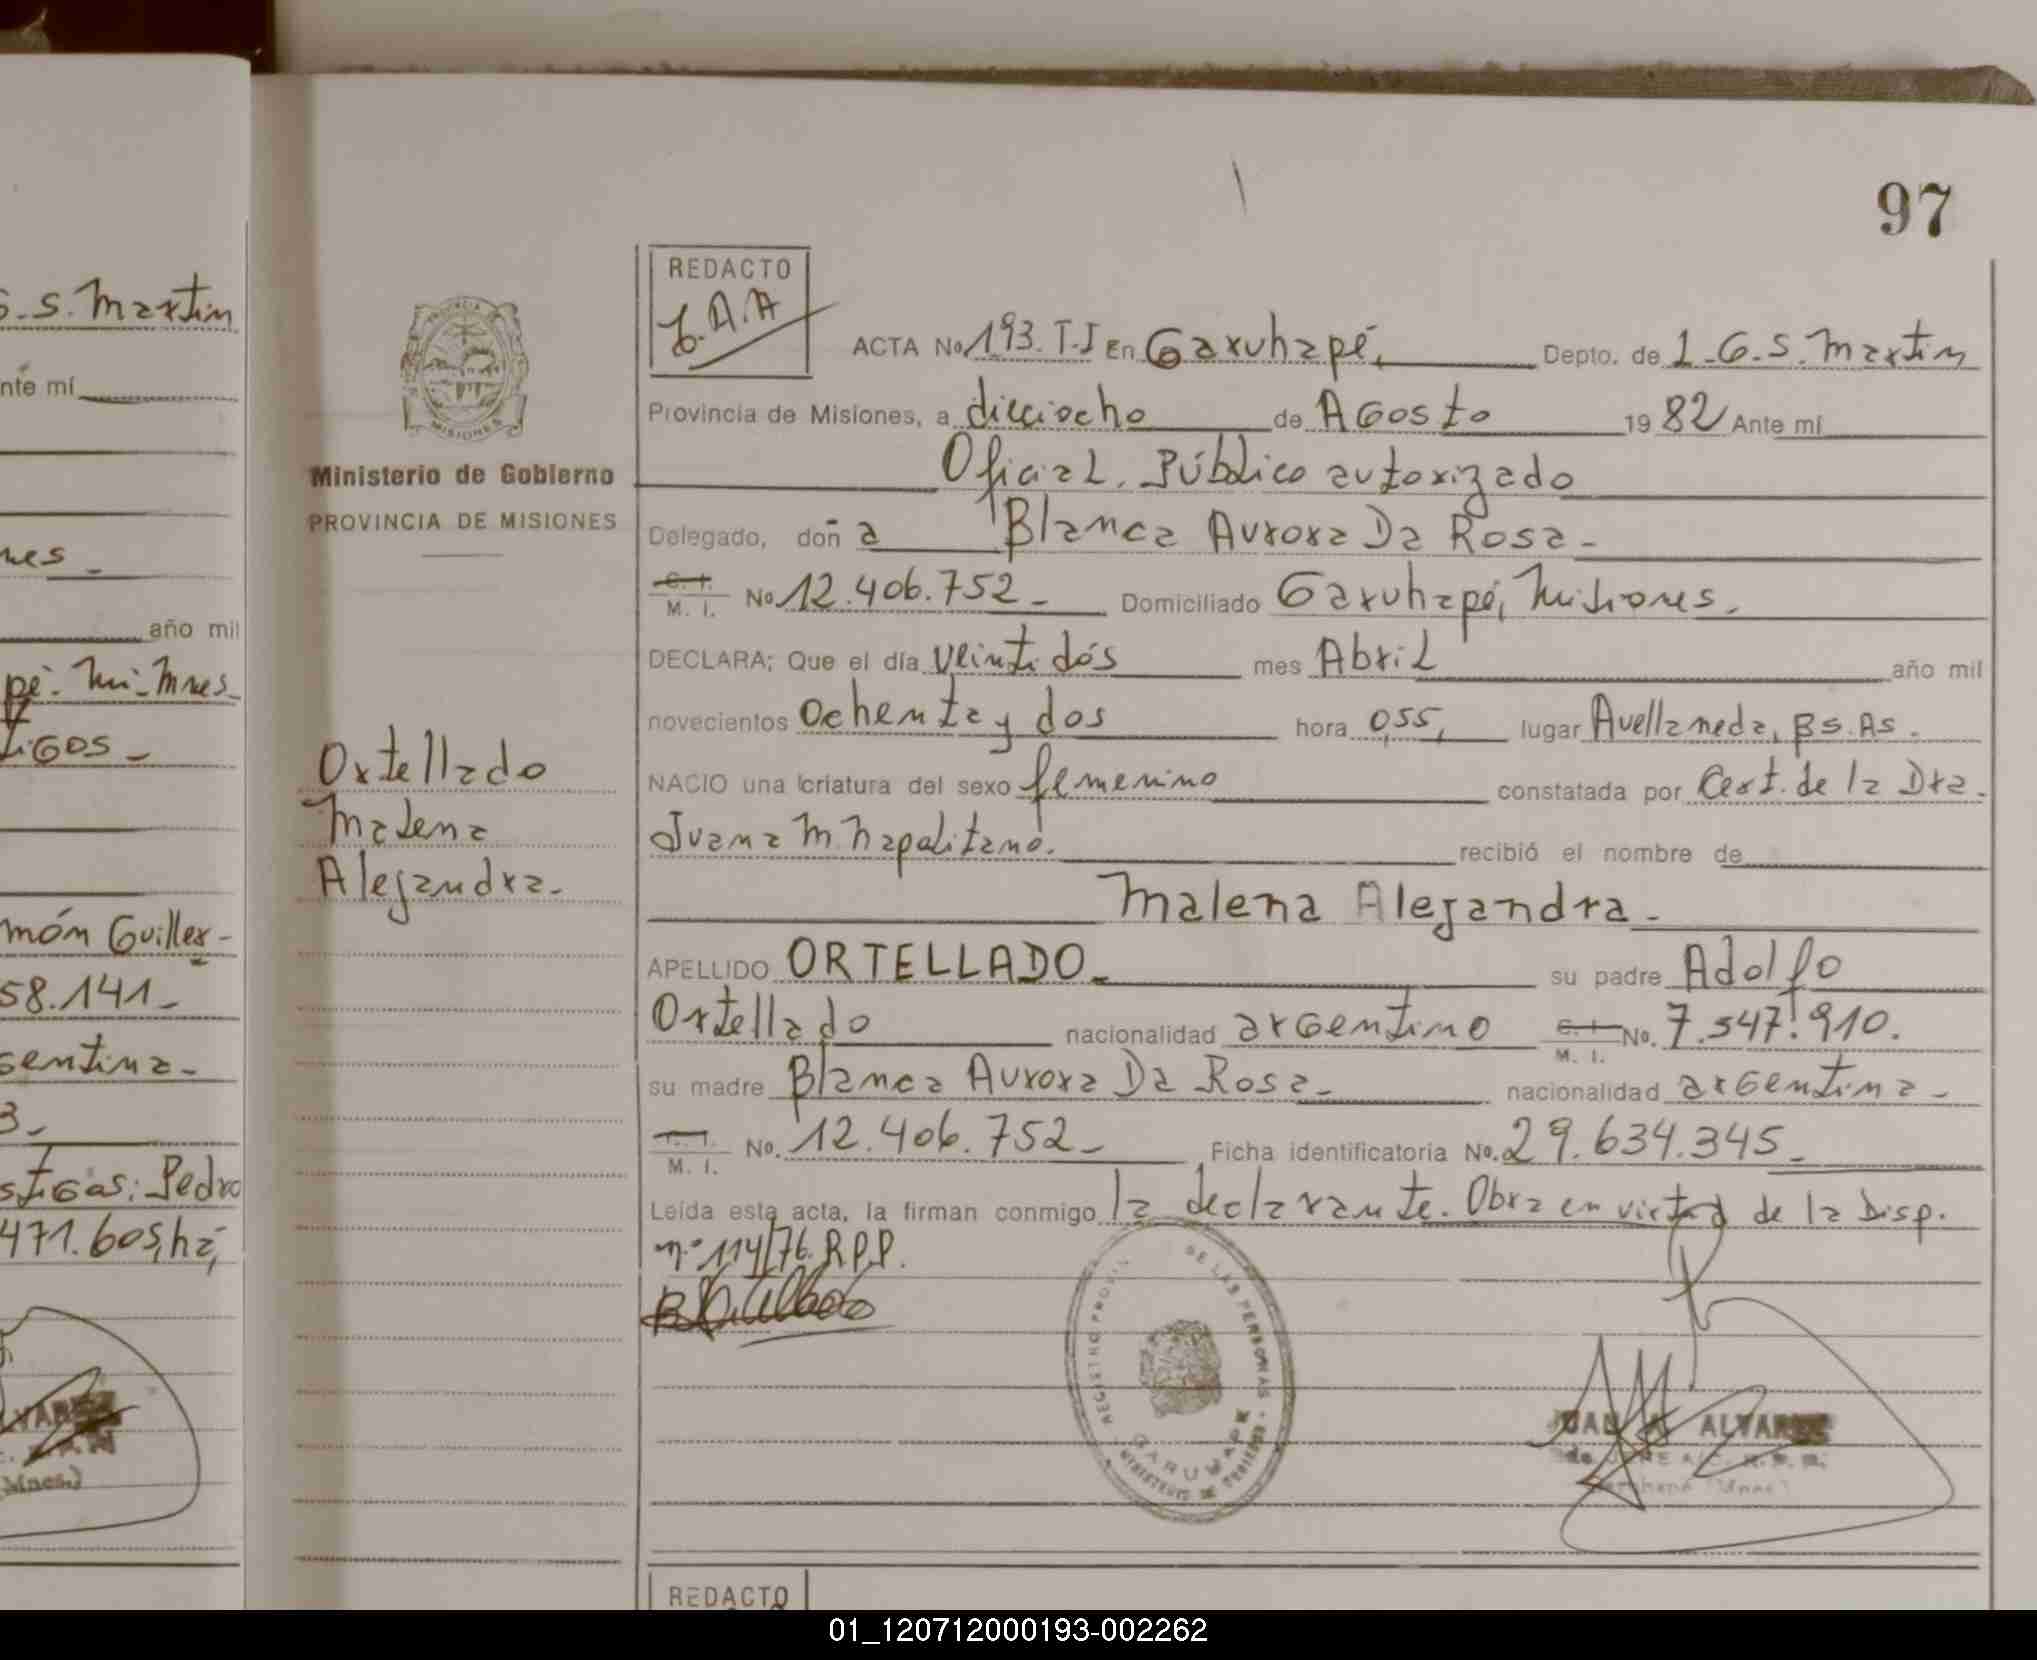 97
G.S. Martin
nte mí
nes
año mil
pé. Misiones
tigos
món Guiller-
58.141
gentina
3
stigas: Pedro
471.605, ha,
PROVINCIA
MISIONES
Ministerio de Gobierno
PROVINCIA DE MISIONES
Ortellado
Malena
Alejandra.
REDACTO
ACTA No 193. T.I En Garuhapé, Depto. de L.G.S. Martin
Provincia de Misiones, a dieciocho de Agosto 1982 Ante mí
Oficial Público autorizado
Delegado, doña Blanca Aurora Da Rosa
C. I. M. I. No 12.406.752 Domiciliado Garuhapé, Misiones.
DECLARA; Que el día veinti dós mes Abril año mil
novecientos ochenta y dos hora 0,55, lugar Avellaneda, Bs. As.
NACIO una criatura del sexo femenino constatada por Cert. de la Dra.
Juana M. Napolitano. recibió el nombre de
Malena Alejandra
APELLIDO ORTELLADO su padre Adolfo
Ortellado nacionalidad argentino C. I. M. I. No. 7.547.910.
su madre Blanca Aurora Da Rosa nacionalidad argentina
C. I. M. I. No. 12.406.752 Ficha identificatoria No. 29.634.345
Leída esta acta, la firman conmigo la declarante. Obra en virtud de la Disp.
nº 114/76. R.P.P.
REGISTRO PROVIN DE LAS PERSONAS
GARUHAPE
MINISTERIO DE GOBIERNO
JUAN A. ALVAREZ
REDACTO
01_120712000193-002262